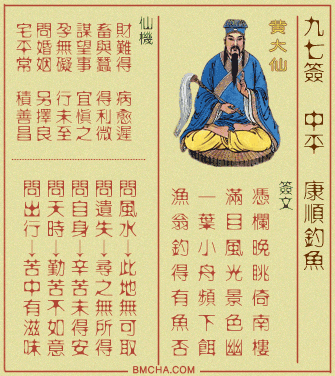 九七簽 中平 康順釣魚
黃大仙
簽文
憑欄晚眺倚南樓
滿目風光景色幽
一葉小舟頻下餌
漁翁釣得有魚否
仙機
財難得 病愈遲
畜與蠶 得利微
謀望事 宜慎之
孕無礙 行未至
問婚姻 另擇良
宅平常 積善昌
問風水→此地無可取
問遺失→尋之無所得
問自身→辛苦未得安
問天時→勤苦不如意
問出行→苦中有滋味
BMCHA.COM